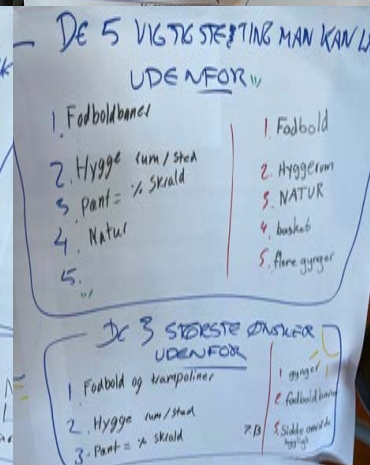 DE 5 VIGTIGSTE TING MAN KAN
UDENFOR
1. Fodboldbaner
2. Hygge rum / sted
3 Pant = % skrald
4. Natur
5.
1. Fodbold
2. Hyggerum
3. NATUR
4. basket
5. flere gynger
DE 3 STØRSTE ØNSKER
UDENFOR
1 Fodbold og trampoliner
2. Hygge rum / sted
3. Pant = % skrald
1 gynger
2. fodboldbaner
3. Sidde område
hyggeligt
7.B